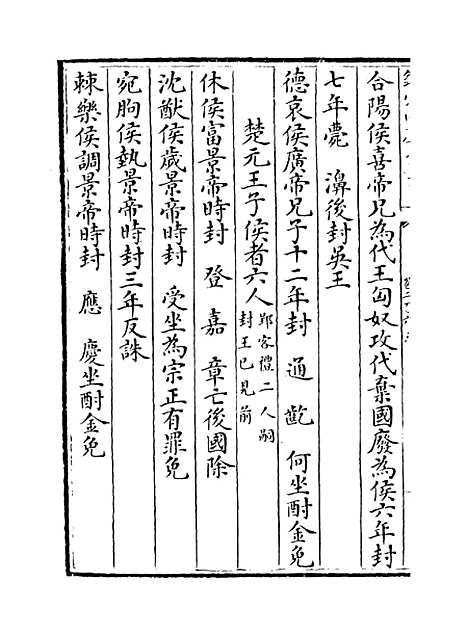 合陽侯喜帝兄為代王匈奴攻代棄國廢為侯六年封
七年薨　濞後封吳王
德哀侯廣帝兄子十二年封　通　齕　何坐酎金免
楚元王子侯者六人郢客禮二人嗣
封王已見前
休侯富景帝時封　登　嘉　章亡後國除
沈猷侯歲景帝時封　受坐為宗正有罪免
宛朐侯埶景帝時封三年反誅
棘樂侯調景帝時封　應　慶坐酎金免